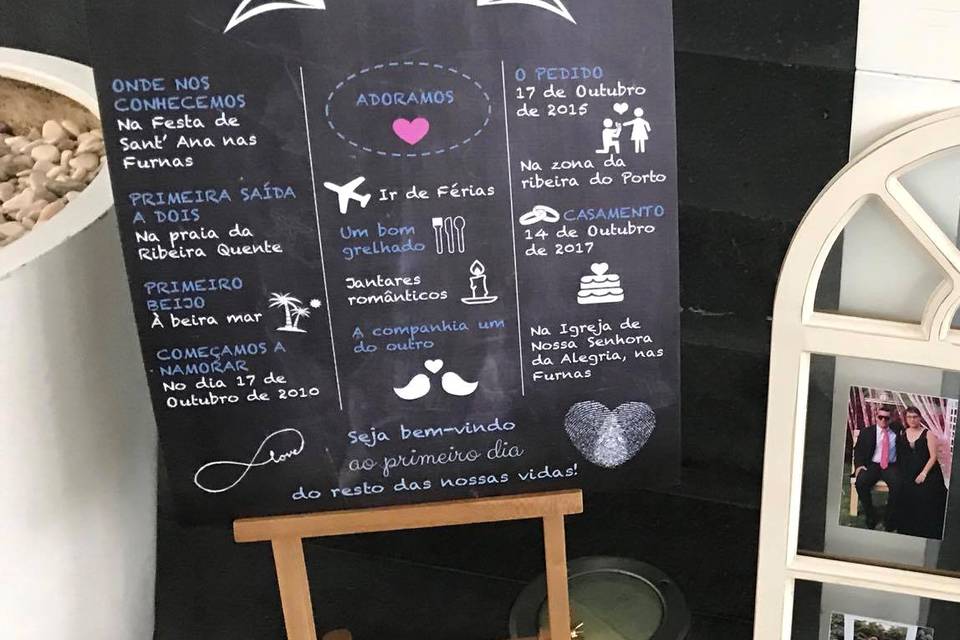 ONDE NOS
CONHECEMOS
Na Festa de
Sant' Ana nas
Furnas
PRIMEIRA SAÍDA
A DOIS
Na praia da
Ribeira Quente
PRIMEIRO
BEIJO
À beira mar
COMEÇAMOS A
NAMORAR
No dia 17 de
Outubro de 2010
ADORAMOS
Ir de Férias
Um bom
grelhado
Jantares
românticos
A companhia um
do outro
O PEDIDO
17 de Outubro
de 2015
Na zona da
ribeira do Porto
CASAMENTO
14 de Outubro
de 2017
Na Igreja de
Nossa Senhora
da Alegria, nas
Furnas
love
Seja bem-vindo
ao primeiro dia
do resto das nossas vidas!